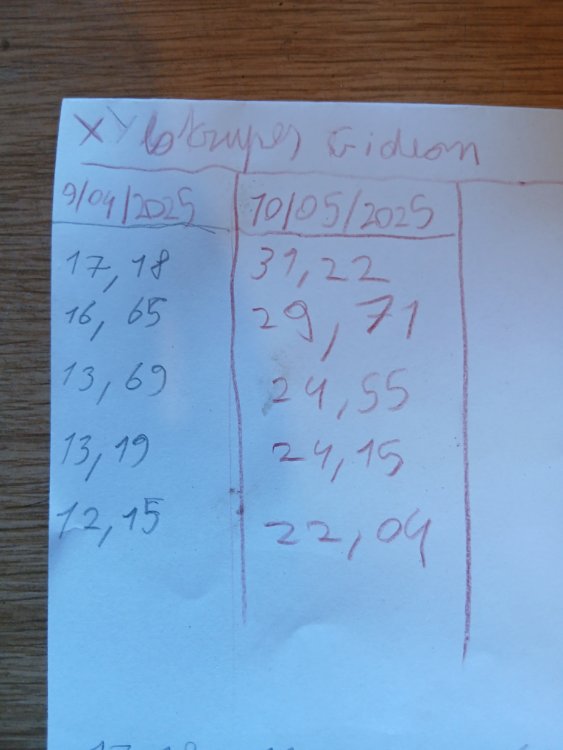 Xylotrupes Gideon
9/04/2025 10/05/2025
17,18 31,22
16,65 29,71
13,69 24,55
13,19 24,15
12,15 22,04